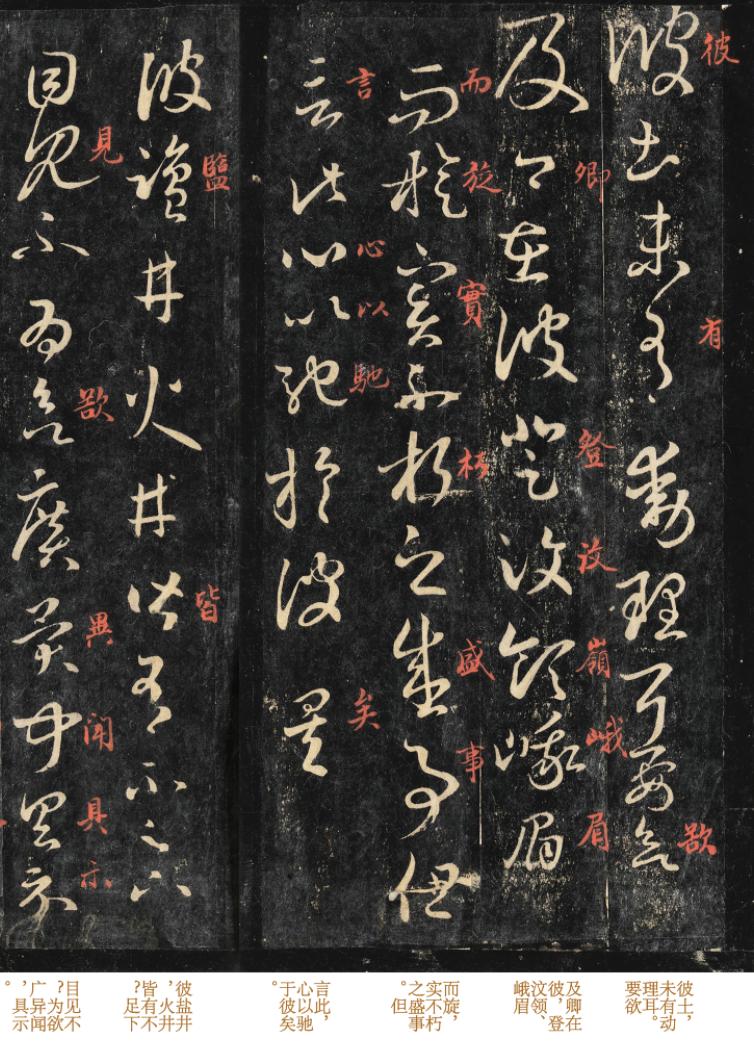 彼土未有動理耳要欲
彼有欲
及卿在彼登汶領峨眉
卿登汶嶺峨眉
而旋實不朽之盛事但
而旋實朽盛事
言此心以馳於彼矣
言心以馳矣
彼鹽井火井皆有不足下
鹽皆
目見不為欲廣異聞具示
見欲異聞具示
彼土，
未有动
理耳。
要欲
及卿在
彼，登
汶领、
峨眉
而旋，
实不朽
之盛事
。但
言此，
心以驰
于彼矣
。
彼盐井
，火井
皆有不
?足下
目见不
?为欲
广异闻
，具示
。